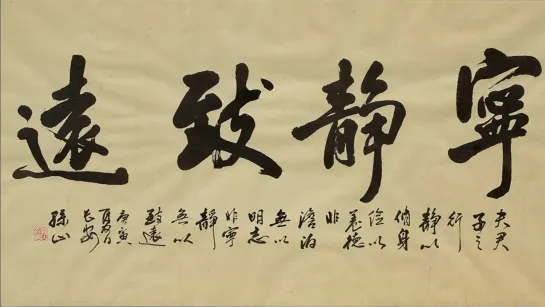 寧靜致遠
夫君
子之
行
靜以
脩身
儉以
養德
非
澹泊
無以
明志
非寧
靜
無以
致遠
庚寅
長安